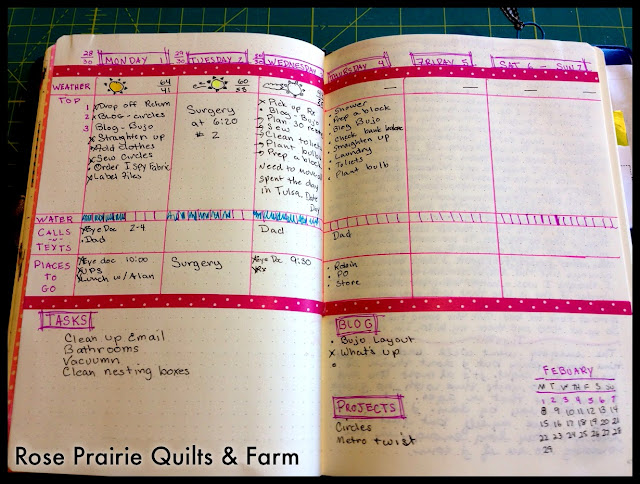 28 30 MONDAY 1
29 30 TUESDAY 2
WEDNESDAY 3
THURSDAY 4
FRIDAY 5
SAT 6 - SUN 7
WEATHER
64
41
60
33
TOP
1 x Drop off Return
2 x BLOG - circles
3 Blog - Bujo
x Straighten up
• Add clothes
x Sew Circles
• Order I Spy Fabric
x Label Files
Surgery
at 6:20
# 2
x Pick up Rx
Blog - Bujo
Plan 30
→ Sew
→ Clean toliets
→ Plant bulb
→ Prep a block
need to move
spent the day
in Tulsa. Date
Day
• Shower
• Prep a block
• Blog Bujo
• Check bank balance
• Straighten up
• Laundry
• Toliets
• Plant bulb
WATER
CALLS
TEXTS
x Eye Doc 2-4
• Dad
Dad
Dad
PLACES
TO
GO
x Eye doc 10:00
x UPS
x Lunch w/ Alan
Surgery
x Eye Doc 9:30
x Rx
• Robin
• PO
• Store
TASKS
Clean up Email
Bathrooms
Vacuumn
Clean nesting boxes
BLOG
• Bujo Layout
x What's up
•
PROJECTS
Circles
Metro twist
FEBUARY
M T W TH F S SU
1 2 3 4 5 6 7
8 9 10 11 12 13 14
15 16 17 18 19 20 21
22 23 24 25 26 27 28
29
Rose Prairie Quilts & Farm